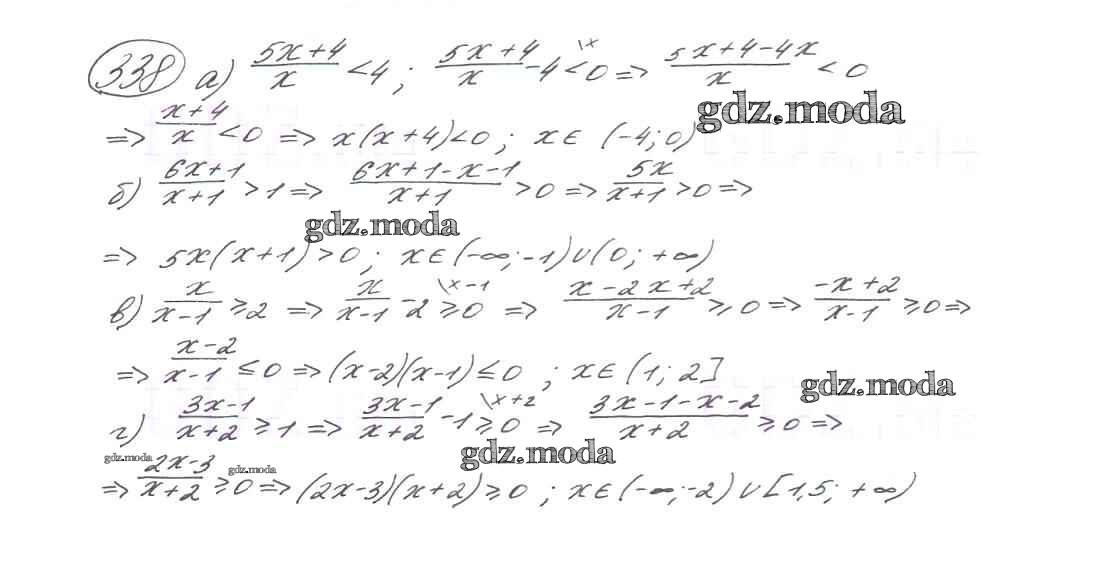 338 а) (5x+4)/x < 4 ; (5x+4)/x - 4 \x < 0 => (5x+4-4x)/x < 0
gdz.moda
=> (x+4)/x < 0 => x(x+4) < 0 ; x ∈ (-4; 0)
б) (6x+1)/(x+1) > 1 => (6x+1-x-1)/(x+1) > 0 => 5x/(x+1) > 0 =>
gdz.moda
=> 5x(x+1) > 0 ; x ∈ (-∞; -1) ∪ (0; +∞)
в) x/(x-1) ≥ 2 => x/(x-1) - 2 \x-1 ≥ 0 => (x-2x+2)/(x-1) ≥ 0 => (-x+2)/(x-1) ≥ 0 =>
=> (x-2)/(x-1) ≤ 0 => (x-2)(x-1) ≤ 0 ; x ∈ (1; 2]
gdz.moda
г) (3x-1)/(x+2) ≥ 1 => (3x-1)/(x+2) - 1 \x+2 ≥ 0 => (3x-1-x-2)/(x+2) ≥ 0 =>
gdz.moda
gdz.moda
gdz.moda
=> (2x-3)/(x+2) ≥ 0 => (2x-3)(x+2) ≥ 0 ; x ∈ (-∞; -2) ∪ [1,5; +∞)